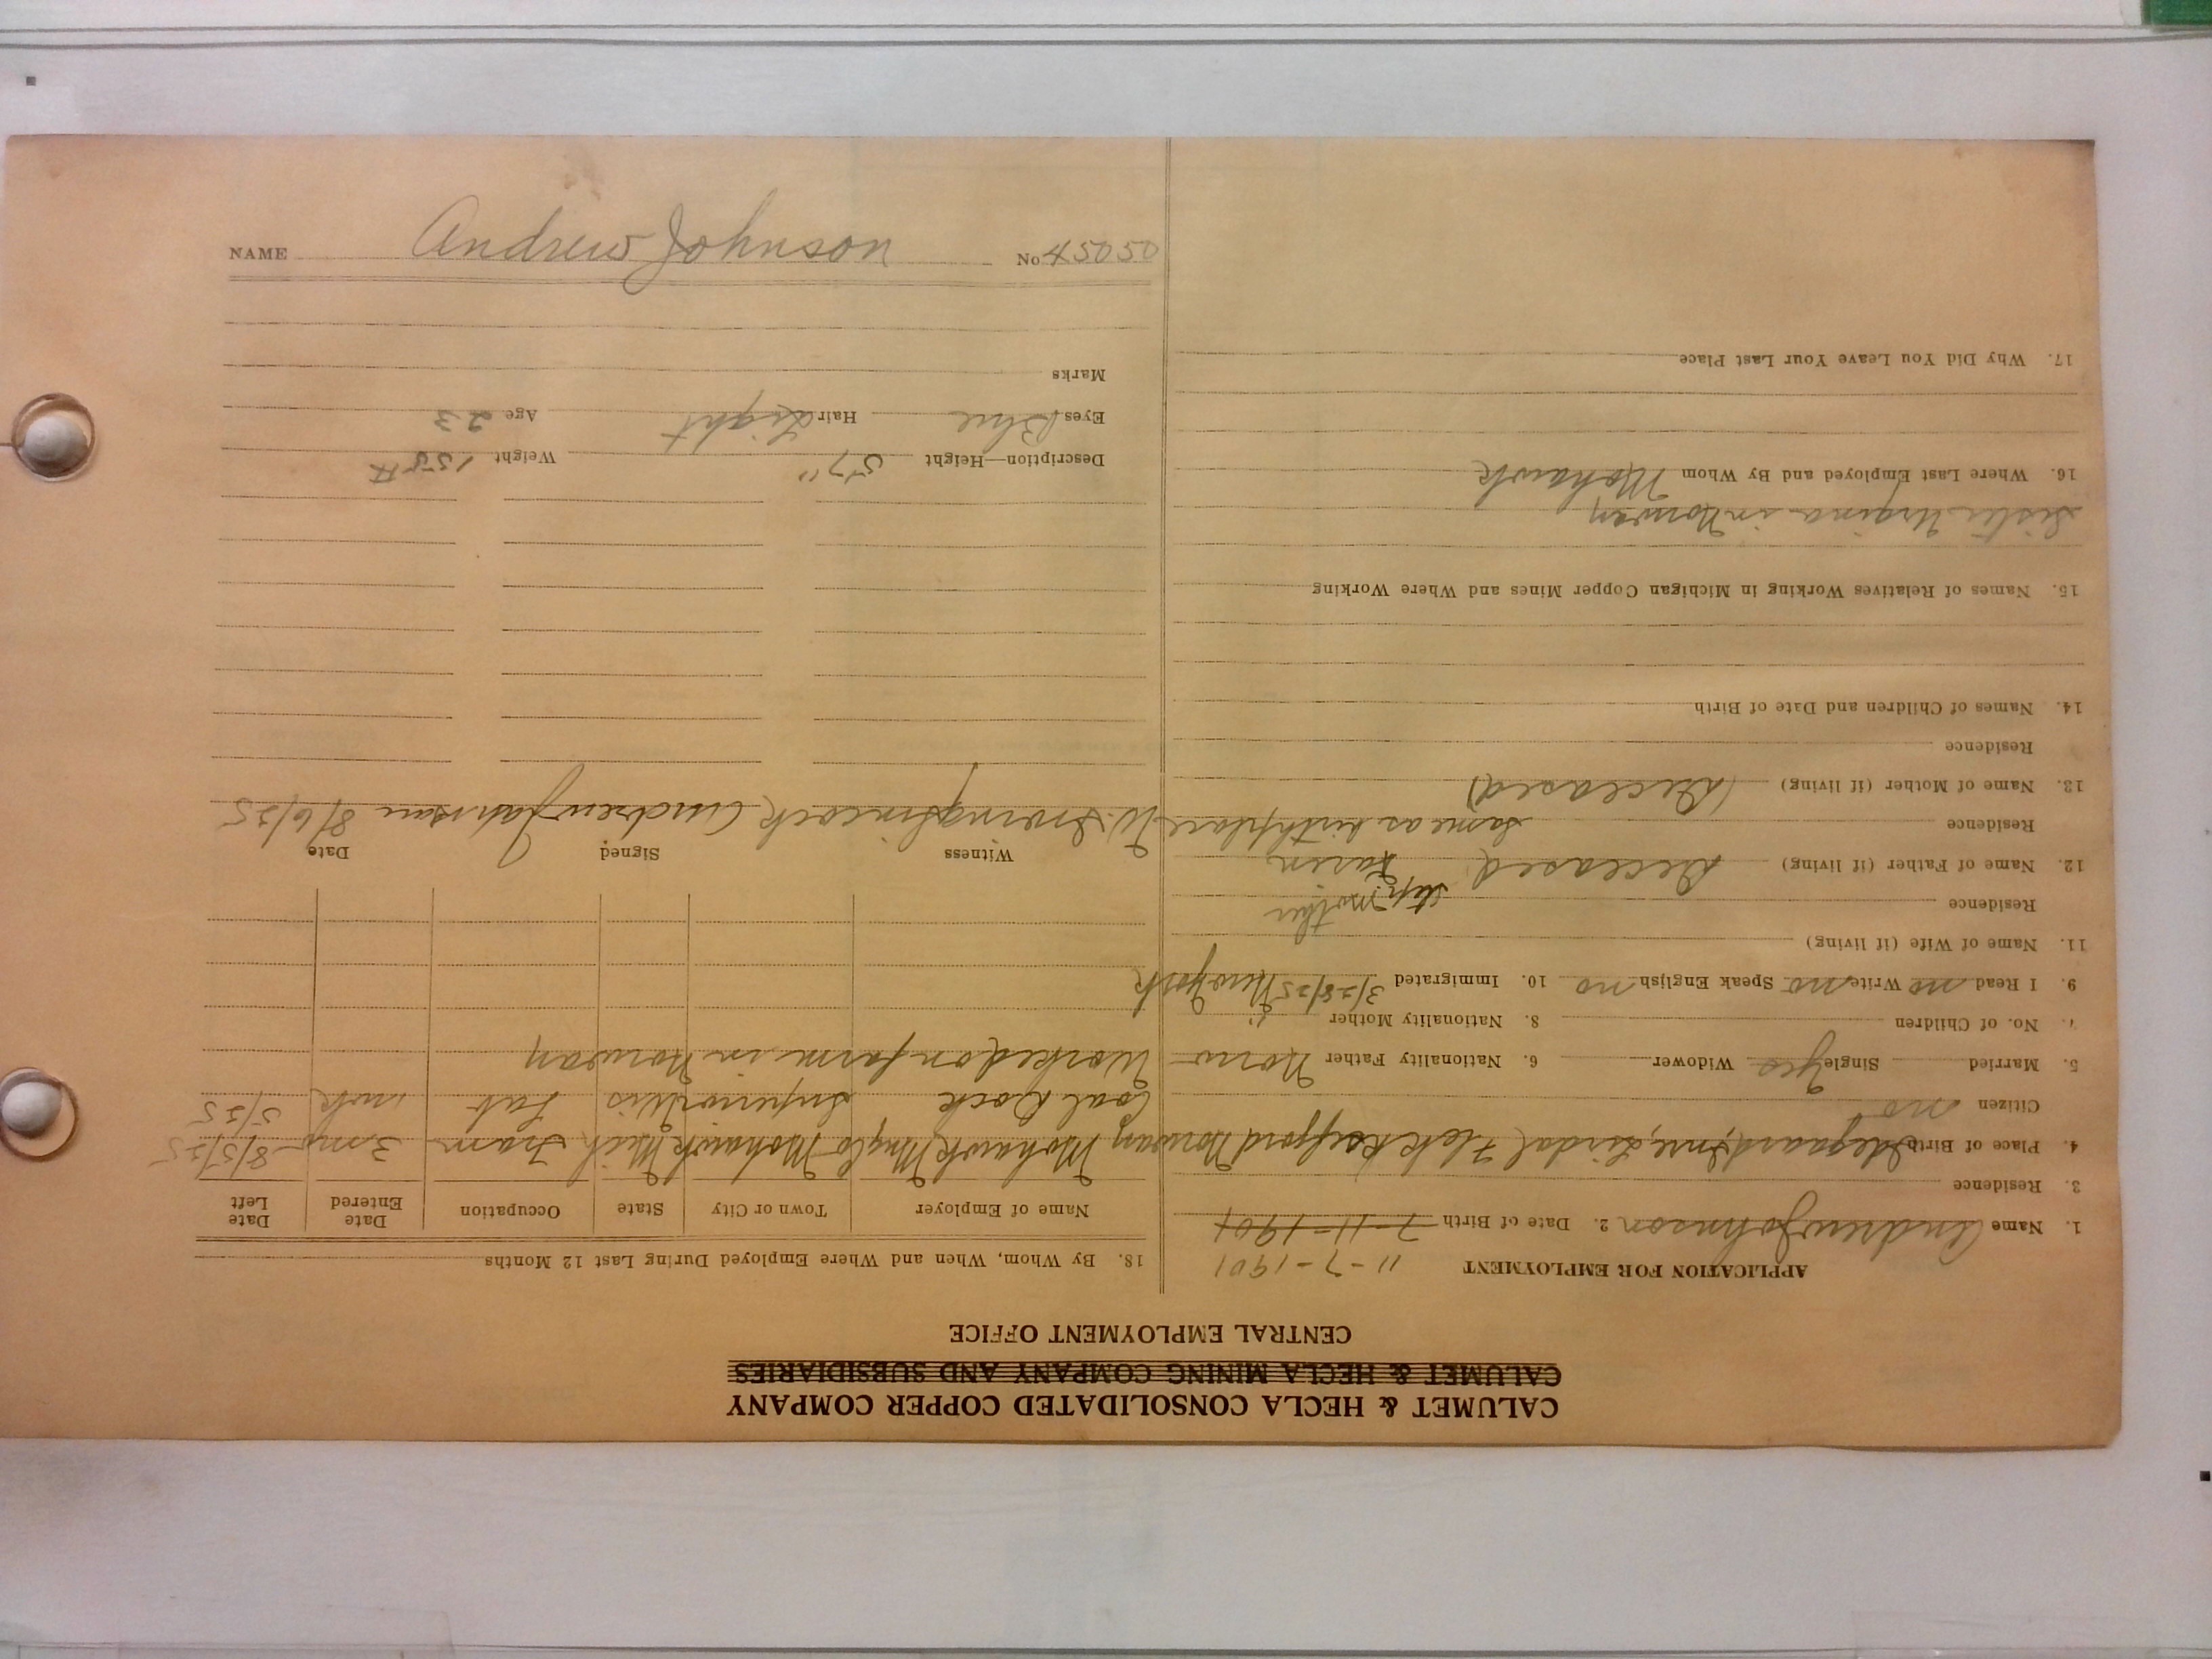 CALUMET & HECLA CONSOLIDATED COPPER COMPANY
CALUMET & HECLA MINING COMPANY AND SUBSIDIARIES
CENTRAL EMPLOYMENT OFFICE
APPLICATION FOR EMPLOYMENT 11-7-1901
1. Name Andrew Johnson 2. Date of Birth 7-11-1901
3. Residence
4. Place of Birth Norway
Citizen no
5. Married Single Yes Widower 6. Nationality Father Norw
7. No. of Children 8. Nationality Mother "
9. I Read no Write no Speak English no 10. Immigrated 3/28/25 New York
11. Name of Wife (if living)
Residence step mother
12. Name of Father (if living) Deceased Karen
Residence same as birthplace
13. Name of Mother (if living) (Deceased)
Residence
14. Names of Children and Date of Birth
15. Names of Relatives Working in Michigan Copper Mines and Where Working
Sister in Norway
16. Where Last Employed and By Whom Mohawk
17. Why Did You Leave Your Last Place
18. By Whom, When and Where Employed During Last 12 Months
Name of Employer Town or City State Occupation Date Entered Date Left
Mohawk Mng Co Mohawk Mich Tram 3 mo 8/5/25
Coal Dock Superior Wis Lab 1 wk 5/25
Worked on farm in Norway
Witness Signed Date
W. Andrew Johnson 8/6/25
Description—Height 5'7" Weight 155#
Eyes Blue Hair Light Age 23
Marks
NAME Andrew Johnson No 45050